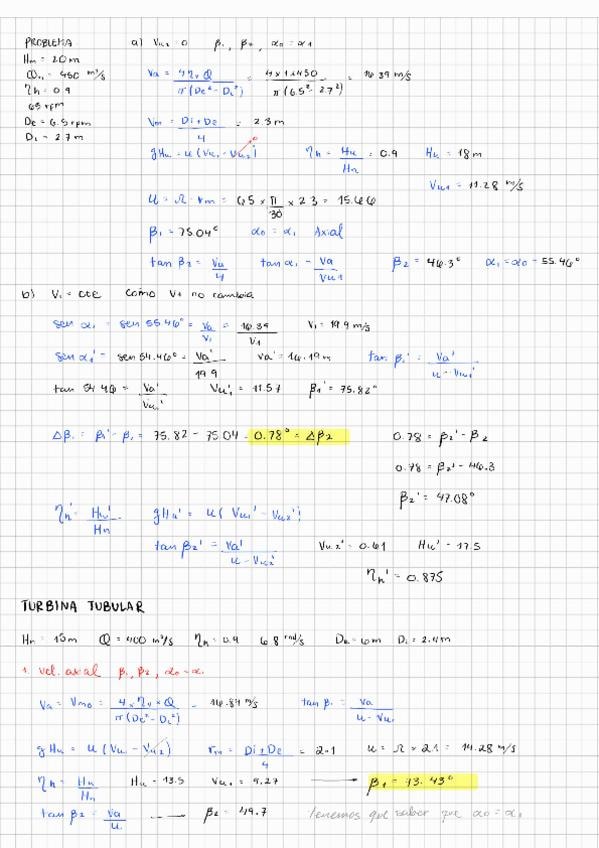 PROBLEMA
Hn = 20 m
Qn = 450 m³/s
ηh = 0.9
65 rpm
De = 6.5 rpm
Di = 2.7 m
a) Vu2 = 0 β1, β2, α0 = α1
Va = 4 ηv Q / π(De² - Di²) = 4 x 1 x 450 / π(6.5² - 2.7²) = 16.39 m/s
Vm = Di + De / 4 = 2.3 m
gHu = u (Vu1 - Vu2) 0 ηh = Hu / Hn = 0.9 Hu = 18 m
Vu1 = 11.28 m/s
u = Ω · rm = 65 x π / 30 x 2.3 = 15.66
β1 = 75.04° α0 = α1 Axial
tan β2 = Va / u tan α1 = Va / Vu1 β2 = 46.3° α1 = α0 = 55.46°
b) V1 = cte Como V1 no cambia
sen α1 = sen 55.46° = Va / V1 = 16.39 / V1 V1 = 19.9 m/s
sen α1' = sen 54.46° = Va' / 19.9 Va' = 16.19 m tan β1' = Va' / u - Vu1'
tan 54.46 = Va' / Vu1' Vu1' = 11.57 β1' = 75.82°
Δβ1 = β1' - β1 = 75.82 - 75.04 = 0.78° = Δβ2 0.78 = β2' - β2
0.78 = β2' - 46.3
β2' = 47.08°
ηh' = Hu' / Hn gHu' = u ( Vu1' - Vu2' )
tan β2' = Va' / u - Vu2' Vu2' = 0.61 Hu' = 17.5
ηh' = 0.875
TURBINA TUBULAR
Hn = 15 m Q = 400 m³/s ηh = 0.9 6.8 rad/s De = 6 m Di = 2.4 m
1. Vel. axial β1, β2, α0 = α1
Va = Vm0 = 4 x ηv x Q / π(De² - Di²) = 16.84 m/s tan β1 = Va / u - Vu1
gHu = u (Vu1 - Vu2) rm = Di + De / 4 = 2.1 u = Ω x 2.1 = 14.28 m/s
ηh = Hu / Hn Hu = 13.5 Vu1 = 9.27 → β1 = 73.43°
tan β2 = Va / u → β2 = 49.7 tenemos que saber que α0 = α1